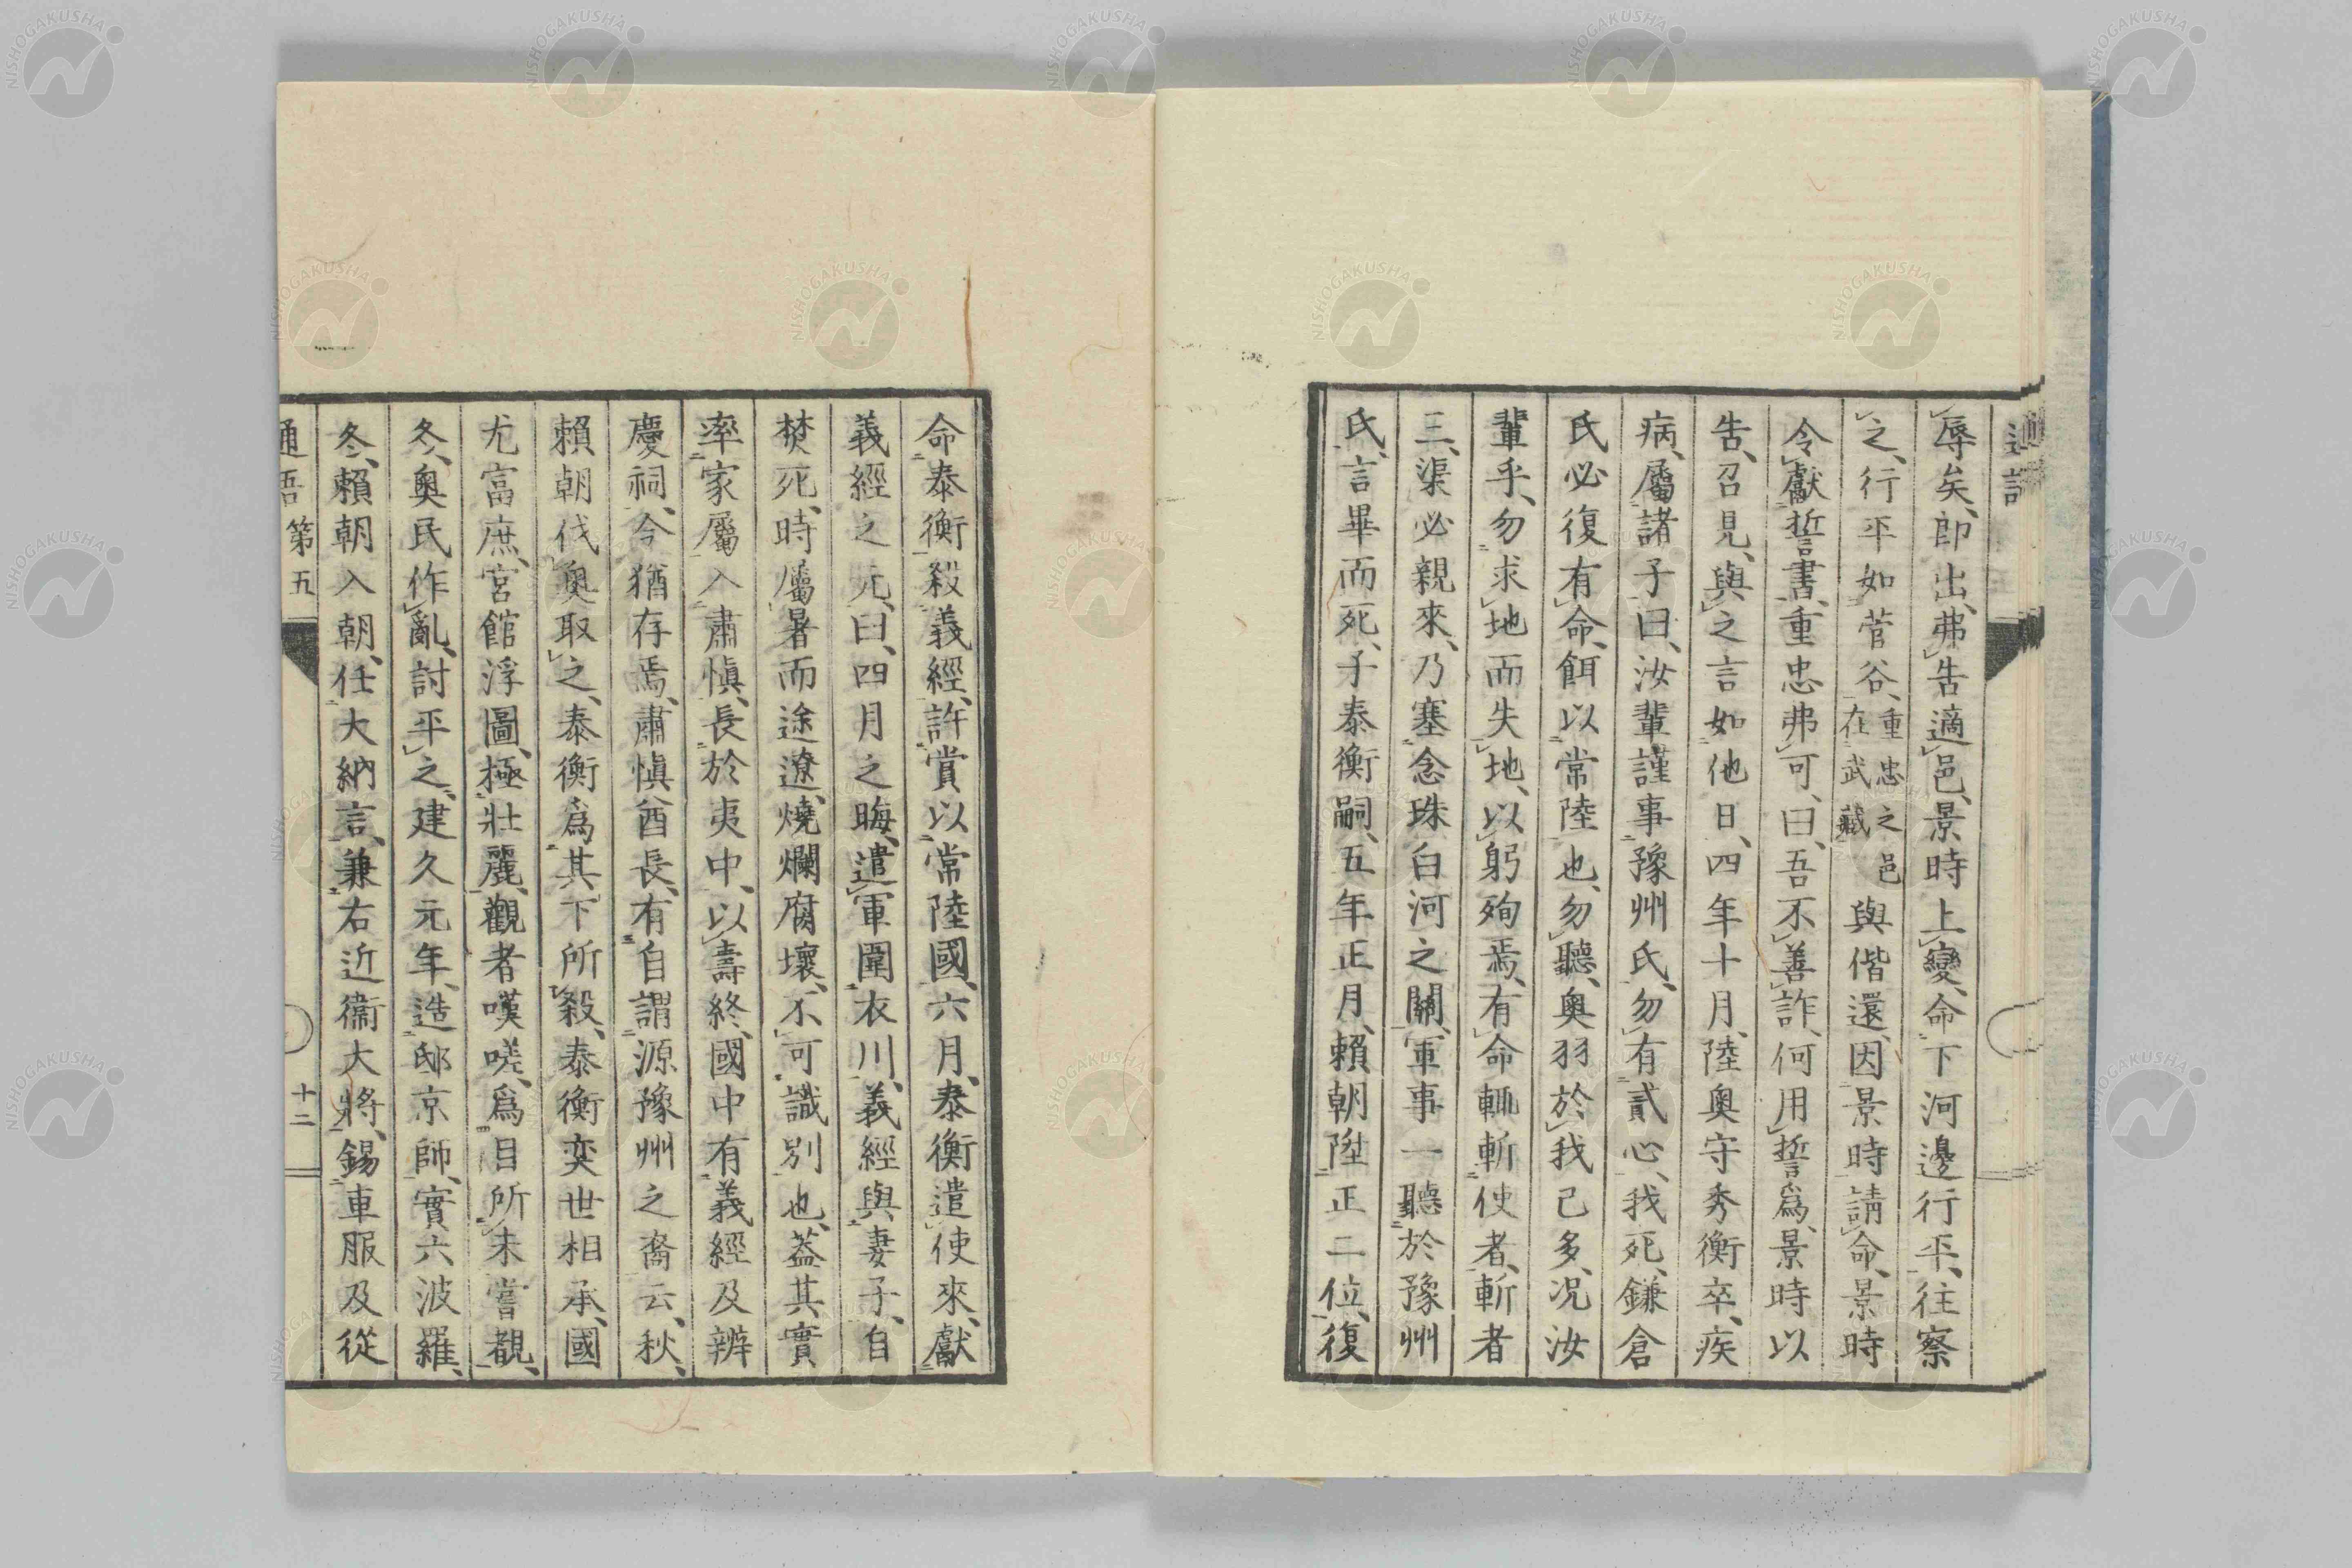 辱矣、卽出、弗告適邑、景時上變、命下河邊行平、往察
之、行平如菅谷、重忠之邑在武藏與偕還、因景時請命、景時
令獻誓書、重忠弗可、曰、吾不善詐、何用誓爲、景時以
告、召見、與之言如他日、四年十月、陸奧守秀衡卒、疾
病、屬諸子曰、汝輩謹事豫州氏、勿有貳心、我死、鎌倉
氏必復有命、餌以常陸也、勿聽、奧羽於我已多、況汝
輩乎、勿求地而失地、以躬殉焉、有命輒斬使者、斬者
三、渠必親來、乃塞念珠白河之關、軍事一聽於豫州
氏、言畢而死、子泰衡嗣、五年正月、賴朝陞正二位、復
命泰衡殺義經、許賞以常陸國、六月、泰衡遣使來、獻
義經之元、曰、四月之晦、遣軍圍衣川、義經與妻子、自
焚死、時屬暑而途遼、燒爛腐壞、不可識別也、蓋其實
率家屬入肅愼、長於夷中、以壽終、國中有義經及辨
慶祠、今猶存焉、肅愼酋長、有自謂源豫州之裔云、秋、
賴朝伐奧取之、泰衡爲其下所殺、泰衡奕世相承、國
尤富庶、宮館浮圖、極壯麗、觀者嘆嗟、爲目所未嘗覩、
冬、奧民作亂、討平之、建久元年、造邸京師、實六波羅、
冬、賴朝入朝、任大納言、兼右近衞大將、錫車服及從
通語 第五 十二